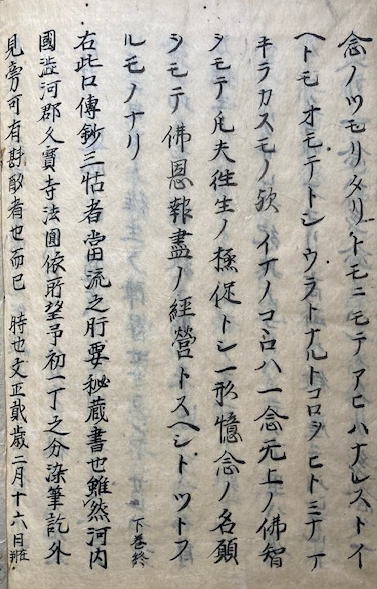 念ノツモリタリトモニモテアヒハナレストイ
ヘトモオモテトシウラトナルトコロヲヒトミナマ
キラカスモノ歟イマノコヽロハ一念无上ノ佛智
ヲモテ凡夫往生ノ極促トシ一形憶念ノ名願
ヲモテ佛恩報盡ノ經營トスヘシトツタフ
ルモノナリ　下巻終
右此口傳鈔三帖者當流之肝要秘蔵書也雖然河内
國澁河郡久寶寺法圓依所望予初一丁之分染筆訖外
見旁可有斟酌者也而已　時也文正貳歳二月十六日在判